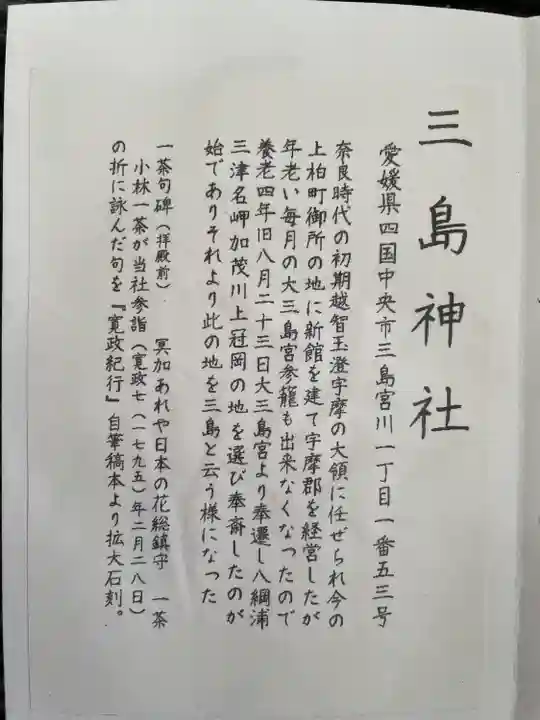 三島神社
愛媛県四国中央市三島宮川一丁目一番五三号
奈良時代の初期越智玉澄宇摩の大領に任ぜられ今の
上柏町御所の地に新館を建て宇摩郡を経営したが
年老い毎月の大三島宮参籠も出来なくなったので
養老四年旧八月二十三日大三島宮より奉遷し八綱浦
三津名岬加茂川上冠岡の地を選び奉斎したのが
始でありそれより此の地を三島と云う様になった
一茶句碑(拝殿前) 冥加あれや日本の花総鎮守 一茶
小林一茶が当社参詣(寛政七(一七九五)年二月二八日)
の折に詠んだ句を『寛政紀行』自筆稿本より拡大石刻。